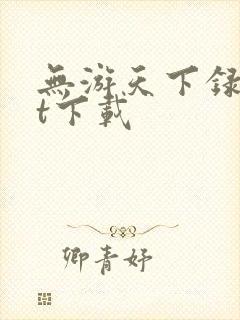 無游天下録
t下載
卿青妤